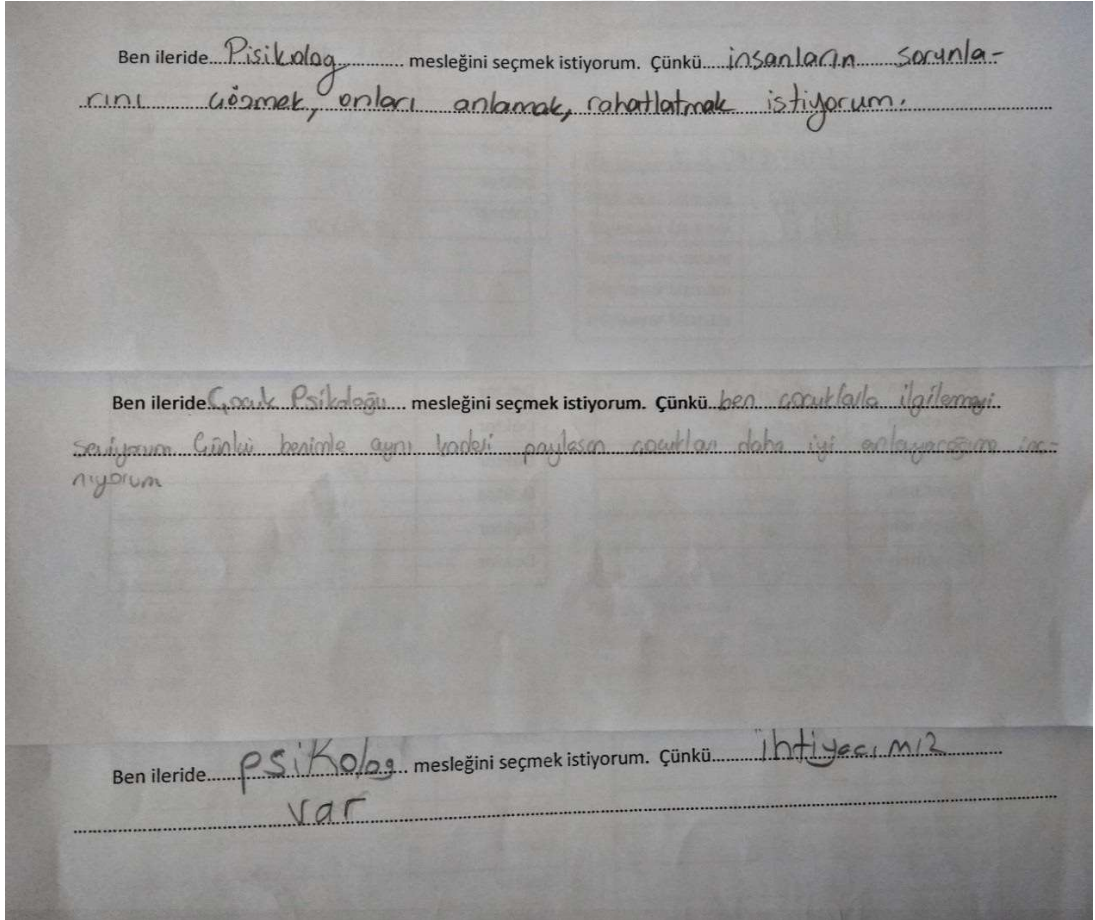 Ben ileride....Pisikolog............. mesleğini seçmek istiyorum. Çünkü.....insanların.......sorunla-
rını çözmek, onları anlamak, rahatlatmak istiyorum.
Ben ileride Çocuk Psikoloğu.... mesleğini seçmek istiyorum. Çünkü..ben çocuklarla ilgilemeyi
seviyorum Çünkü benimle aynı kaderi paylaşan çocukları daha iyi anlayacağıma ina-
nıyorum
Ben ileride......psikolog.. mesleğini seçmek istiyorum. Çünkü..........ihtiyacımız..........
var